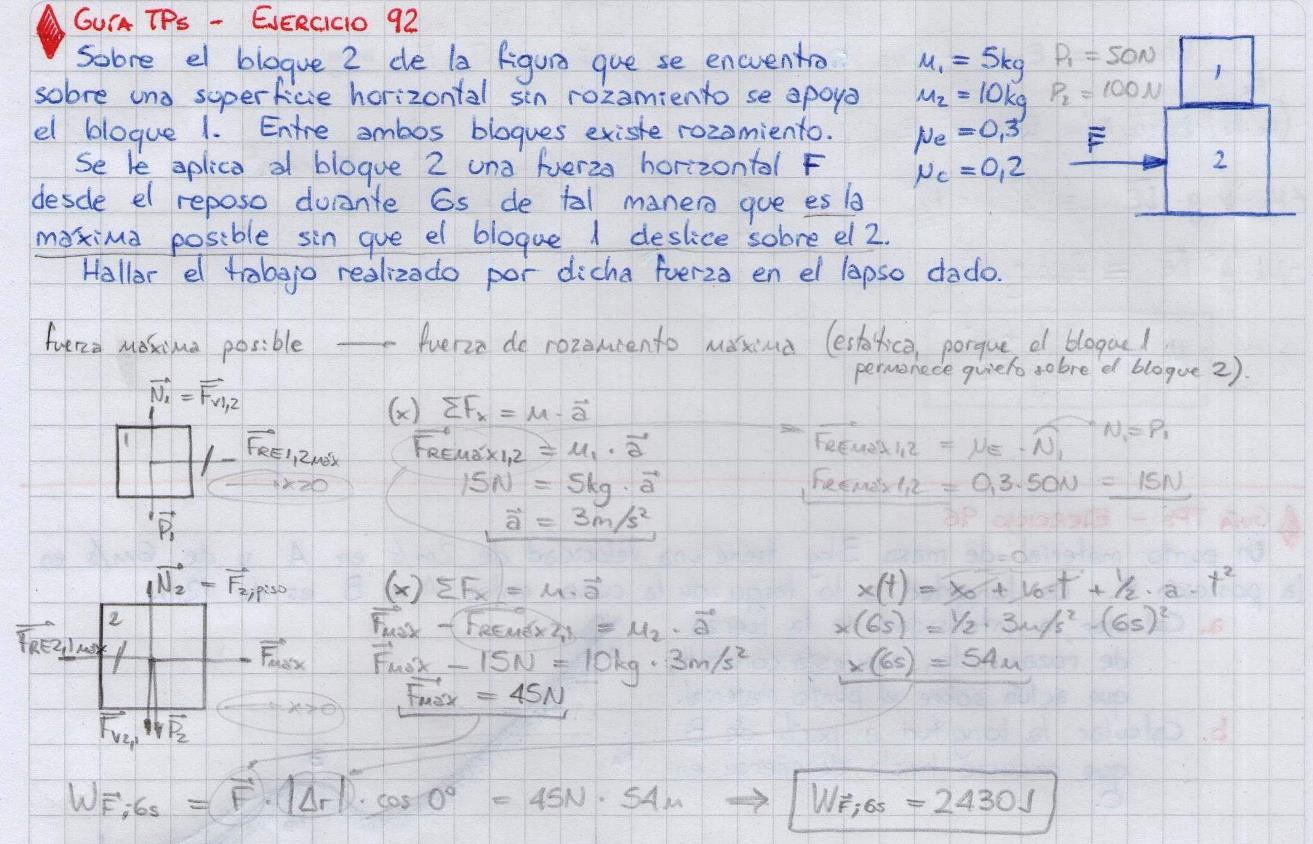 GUÍA TPs - EJERCICIO 92
Sobre el bloque 2 de la figura que se encuentra
sobre una superficie horizontal sin rozamiento se apoya
el bloque 1. Entre ambos bloques existe rozamiento.
Se le aplica al bloque 2 una fuerza horizontal F
desde el reposo durante 6s de tal manera que es la
máxima posible sin que el bloque 1 deslice sobre el 2.
Hallar el trabajo realizado por dicha fuerza en el lapso dado.
m₁ = 5kg P₁ = 50N
m₂ = 10kg P₂ = 100N
μe = 0,3
μc = 0,2
1
F⃗
2
fuerza máxima posible — fuerza de rozamiento máxima (estática, porque el bloque 1
permanece quieto sobre el bloque 2).
N⃗₁ = F⃗v1,2
1
F⃗RE1,2máx
x>0
P⃗₁
(x) ΣFx = m · a⃗
F⃗REmáx1,2 = m₁ · a⃗
15N = 5kg · a⃗
a⃗ = 3m/s²
F⃗REmáx1,2 = μE · N⃗₁ N₁ = P₁
F⃗REmáx1,2 = 0,3 · 50N = 15N
N⃗₂ = F⃗2,piso
2
F⃗RE2,1máx
F⃗máx
x>0
F⃗v2,1 P⃗₂
(x) ΣFx = m · a⃗
F⃗máx - F⃗REmáx2,1 = m₂ · a⃗
F⃗máx - 15N = 10kg · 3m/s²
F⃗máx = 45N
x(t) = x₀ + v₀·t + ½ · a · t²
x(6s) = ½ · 3m/s² · (6s)²
x(6s) = 54m
WF⃗;6s = F⃗ · |Δr| · cos 0° = 45N · 54m ⇒ WF⃗;6s = 2430J